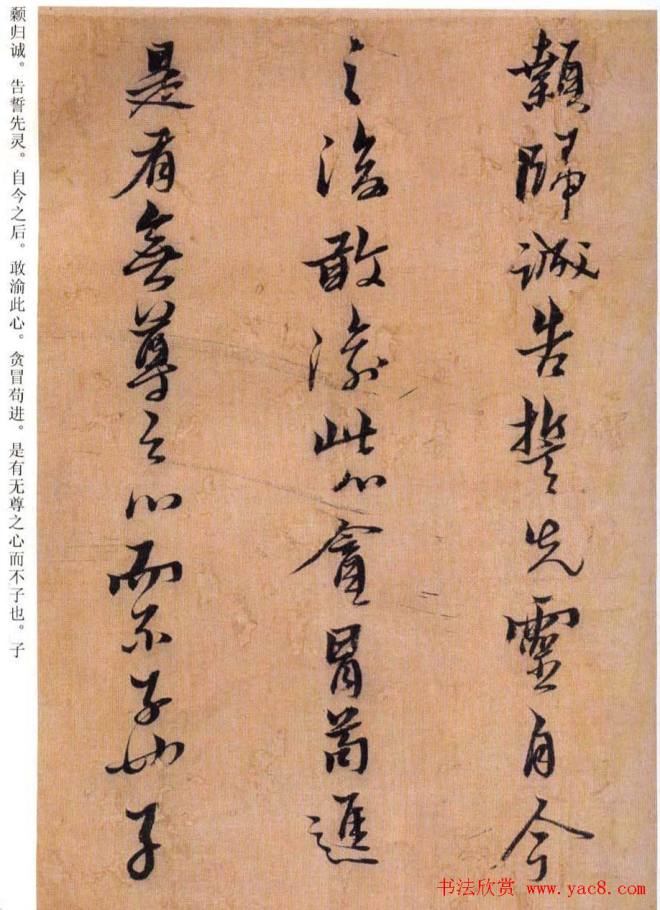 颡归诚。告誓先灵。自今之后。敢渝此心。贪冒苟进。是有无尊之心而不子也。子
顙歸誠告誓先靈自今
之後敢渝此心貪冒苟進
是有無尊之心而不子也子
书法欣赏 www.yac8.com